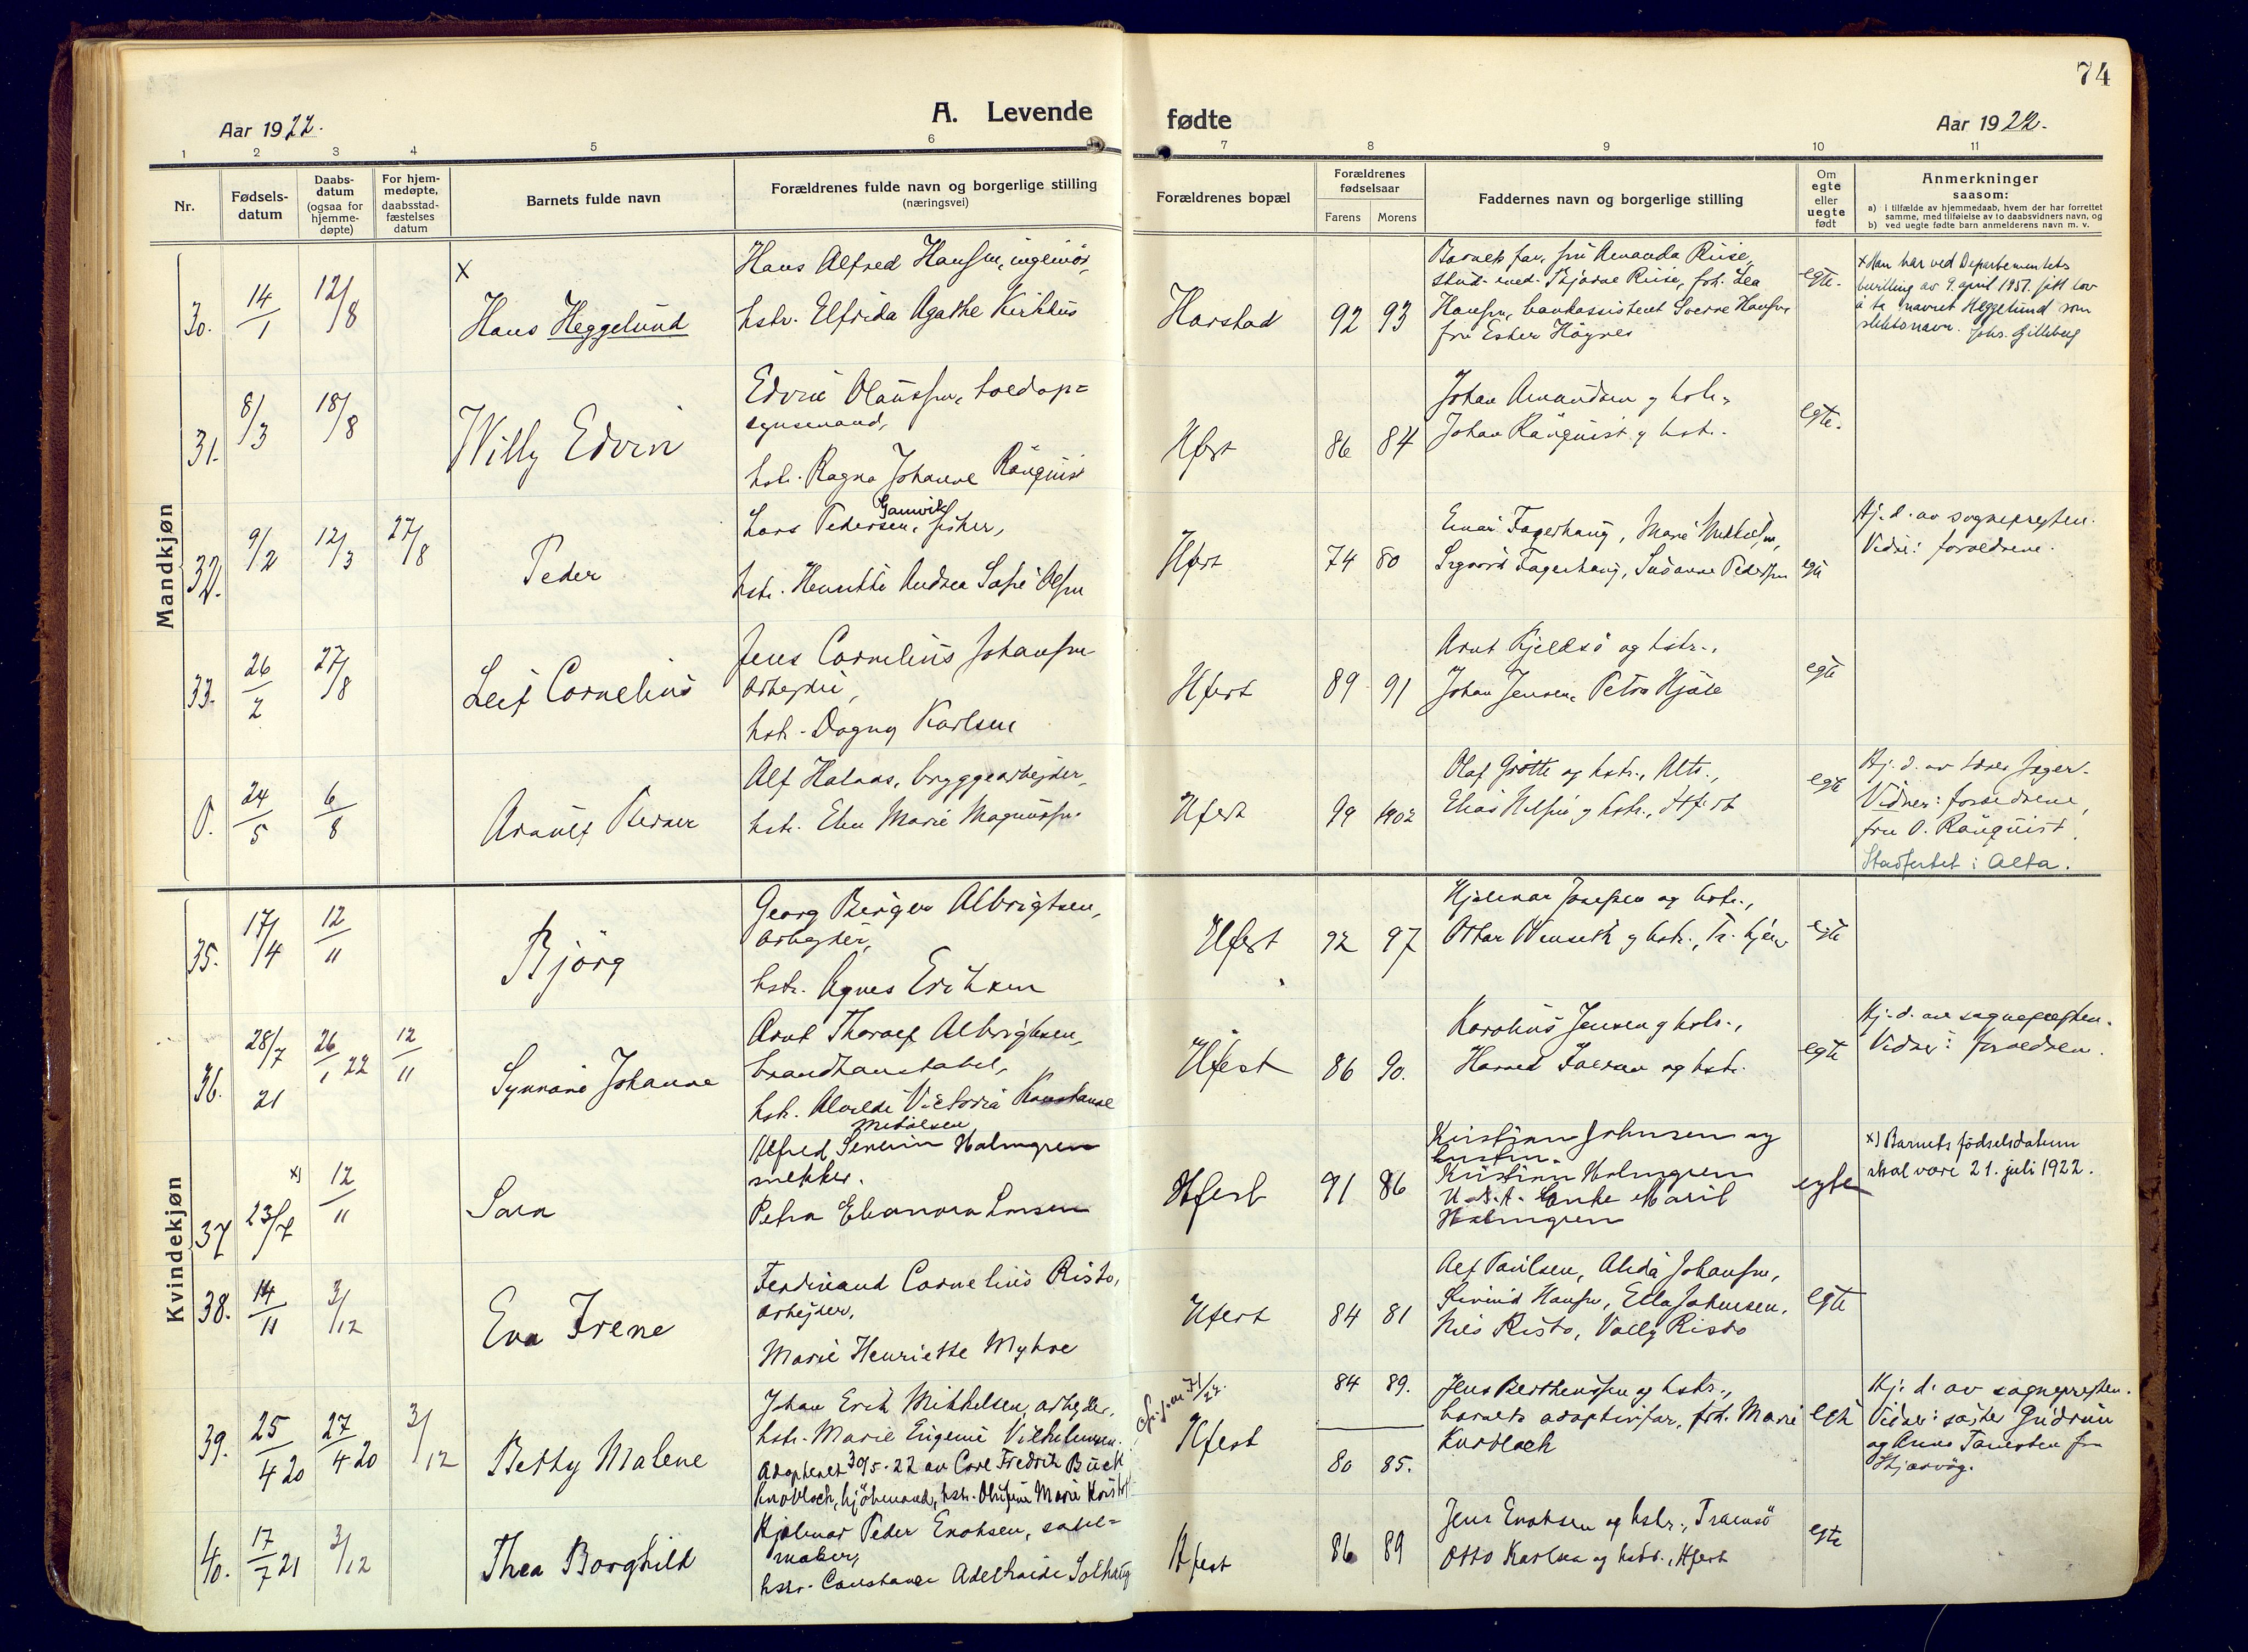 74
Aar 1922.
A. Levende
fødte
Aar 1922.
1 2 3 4 5 6 7 8 9 10 11
Nr.
Fødsels-
datum
Daabs-
datum
(ogsaa for
hjemme-
døpte)
For hjem-
medøpte,
daabsstad-
fæstelses
datum
Barnets fulde navn
Forældrenes fulde navn og borgerlige stilling
(næringsvei)
Forældrenes bopæl
Forældrenes
fødselsaar
Farens Morens
Faddernes navn og borgerlige stilling
Om
egte
eller
uegte
født
Anmerkninger
saasom:
a) i tilfælde av hjemmedaab, hvem der har forrettet
samme, med tilføielse av to daabsvidners navn, og
b) ved uegte fødte barn anmelderens navn m. v.
Mandkjøn
30. 14/1 12/8
x
Hans Heggelund
Hans Alfred Hansen, ingeniør,
hstr. Elfrida Agathe
Harstad 92 93
Barnets far, fru Amanda Riise,
stud. med. Bjarne Riise, frk. Lea
Hansen, bankassistent Sverre Hansen
fru Ester Høgnes
egte.
x Han har ved Departementets
bevilling av 9. april 1957. fått lov
å ta navnet Heggelund som
slektsnavn. Johs. Gilleberg
31. 8/3 18/8
Willy Edvin
Edvin Olaussen, toldop=
synsmand,
hstr. Ragna Johanne Rånquist
Hfest 86 84
Johan Amundsen g hstr.,
Johan Rånquist g hstr.
egte.
32. 9/2 12/3 27/8
Peder
Gamvik
Lars Pedersen, fisker,
hstr. Henritte Andrea Sofie Olsen
Hfest 74 80
Einar Fagerhaug, Marie Mikkelsen,
Sigvard Fagerhaug, Susanne Pedersen
egte
Hj. d. av sognepresten.
Vidne: forældrene.
33. 26/2 27/8
Leif Cornelius
Jens Cornelius Johansen
arbejder,
hstr. Dagny Karlsen
Hfest 89 91
Arnt Kjeldsø og hstr.,
Johan Jensen, Petra
egte
0. 24/5 6/8
Arnulf Reinar
Alf Halaas, bryggearbejder,
hstr. Elen Marie Magnussen
Hfest 99 1902
Olaf Grøtte og hstr., Alta.,
Elias Nilsen g hstr., Hfest
egte
Hj. d. av lærer Jager.
Vidner: forældrene,
fru O. Rånquist.
Stadfestet i Alta.
Kvindekjøn
35. 17/4 12/11
Bjørg
Georg Birger Albrigtsen,
arbejder,
hstr. Agnes Eriksen
Hfest 92 97
Hjalmar Josefsen og hstr.,
Ottar Winseth g hstr., Tr. hjem
egte
36. 28/7 21 26/1 22 12/11
Synnøve Johanne
Arnt Thoralf Albrigtsen,
brandkonstabel,
hstr. Alvilde Victoria Konstanse
Nielsen
Hfest 86 90.
Karolius Jensen g hstr.,
Harald Iversen og hstr.
egte
Hj. d. av sognepresten.
Vidner: forældren.
37 x) 23/7 12/11
Sara
Alfred Severin Halmgren
snekker.
Petra Eleonora Larsen
Hfest 91 86
Kristian Johnsen og
hustru.
Kristian Holmgren
U.S.A. Enke Marit
Holmgren
egte
x) Barnets fødselsdatum
skal være 21. juli 1922.
38. 14/11 3/12
Eva Irene
Ferdinand Cornelius Risto,
arbejder,
Marie Henriette Myhre
Hfest 84 81
Alf Paulsen, Alida Johansen,
Eivind Hansen, Ella Johnsen,
Nils Risto, Vally Risto
egte
39. 25/4 20 27/4 20 3/12
Betty Malene
Johan Erik Mikkelsen, arbejder,
hstr. Marie Eugenie Vilhelmsen.
Adopteret 30/5-22 av Carl Fredrik Buck
Knobloch, kjøbmand, hstr. Olufine Marie
Hfest 84 89.
80 85.
Jens Berthenssen og hstr.,
barnets adoptivfar, frk. Marie
Knobloch
egte
Hj. d. av sognepresten.
Vidner: søster Gudrun
og Anna fra
Skjærvøy.
40. 17/7 21 3/12
Thea Borghild
Hjalmar Peder Enoksen, sadel=
maker,
hstr. Constance Adelheide Solhaug
Hfest 86 89
Jens Enoksen og hstr., Tromsø
Otto Karlsen og hstr., Hfest
egte